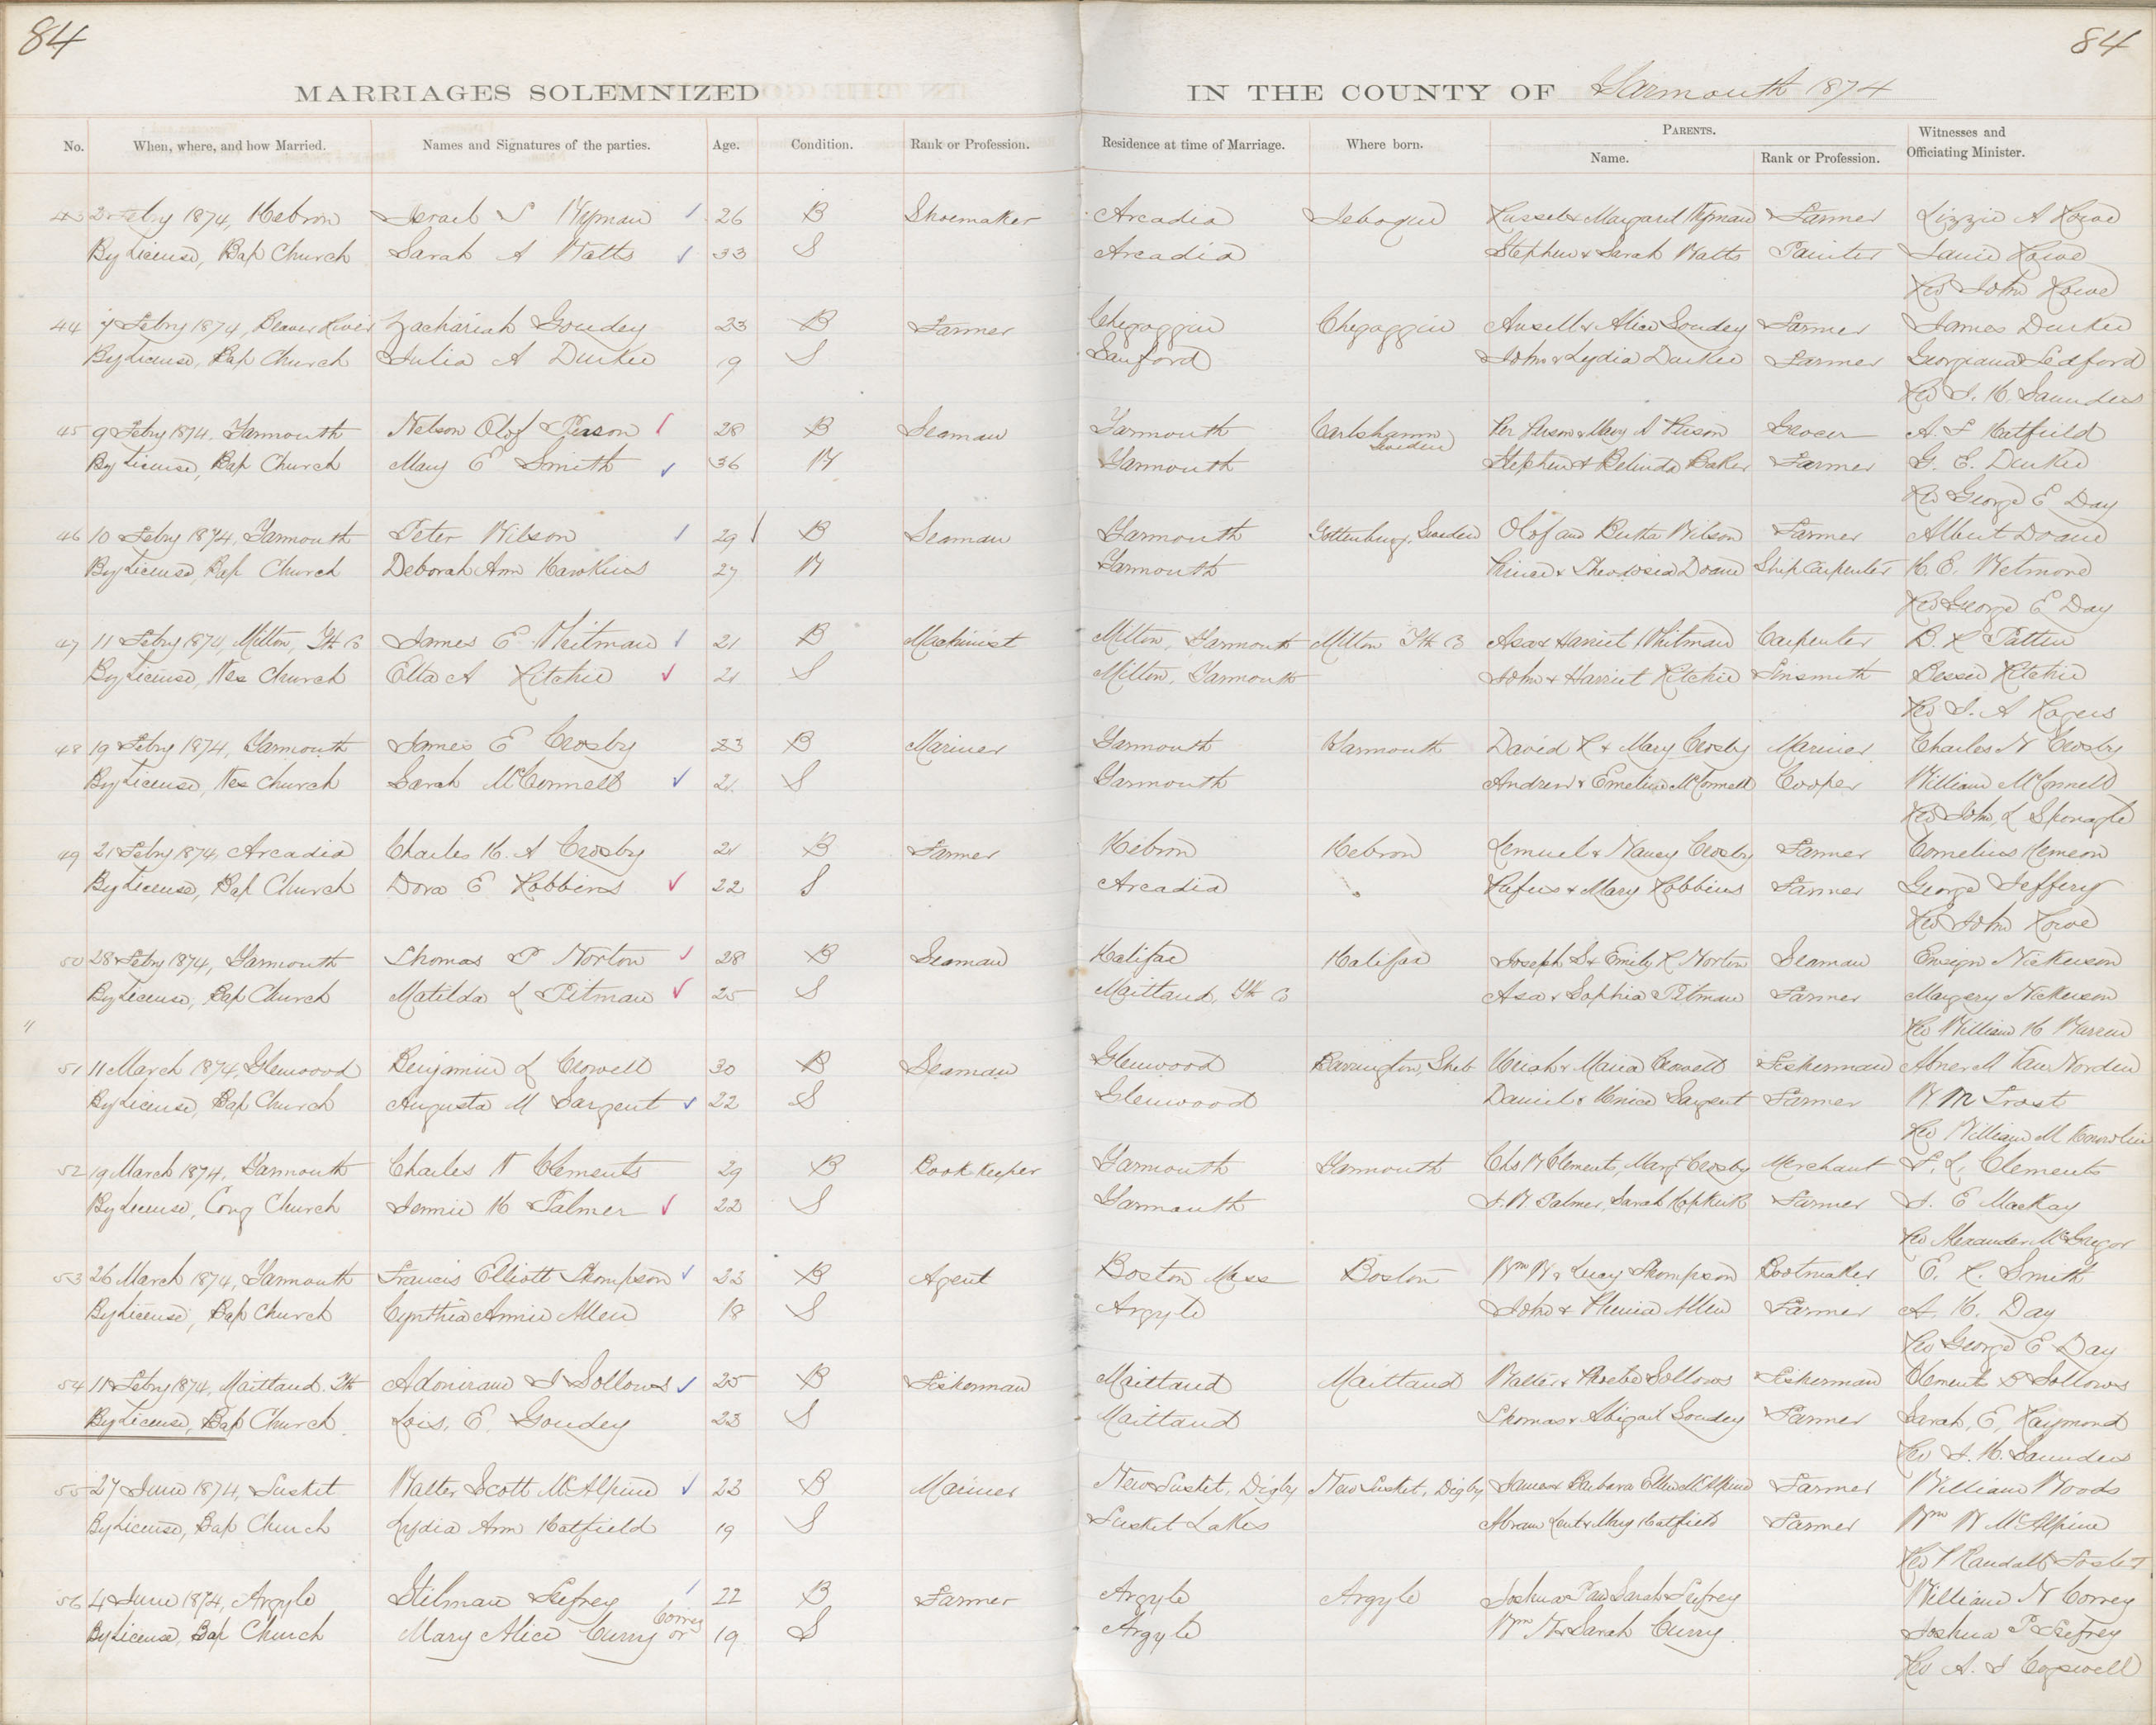 84
84
MARRIAGES SOLEMNIZED
IN THE COUNTY OF Yarmouth 1874
No. When, where, and how Married. Names and Signatures of the parties. Age. Condition. Rank or Profession. Residence at time of Marriage. Where born. PARENTS. Name. Rank or Profession. Witnesses and Officiating Minister.
43 2 Febry 1874, Hebron Israel S Wyman 26 B Shoemaker Arcadia Jebogue Russel & Margaret Wyman Farmer Lizzie A Rowe
By License, Bap Church Sarah A Watts 33 S Arcadia Stephen & Sarah Watts Painter Rowe
Rev John Rowe
44 7 Febry 1874, Beaver River Zachariah Goudey 23 B Farmer Chegoggin Chegoggin Ansell & Alice Goudey Farmer James Durkee
By License, Bap Church Julia A Durkee 19 S Sanford John & Lydia Durkee Farmer Georgiana Tedford
Rev J. H. Saunders
45 9 Febry 1874, Yarmouth Nelson Olof Pierson 28 B Seaman Yarmouth Carlshamn Sweden Per Person & Mary A Person Grocer A F Hatfield
By License, Bap Church Mary E Smith 36 W Yarmouth Stephen & Belinda Baker Farmer G. E. Durkee
Rev George E Day
46 10 Febry 1874, Yarmouth Peter Wilson 29 B Seaman Yarmouth Gottenburg, Sweden Olof and Wilson Farmer Albert Doane
By License, Bap Church Deborah Ann Hawkins 27 W Yarmouth Prince & Theodosia Doane Ship Carpenter H. E. Wetmore
Rev George E Day
47 11 Febry 1874, Milton, Yth Co James E Whitman 21 B Machinist Milton, Yarmouth Milton Yth Co Asa & Harriet Whitman Carpenter B. R Patten
By License, Wes Church Etta A Ritchie 21 S Milton, Yarmouth John & Harriet Ritchie Tinsmith Bessie Ritchie
Rev J. A Rogers
48 19 Febry 1874, Yarmouth James E Crosby 23 B Mariner Yarmouth Yarmouth David R & Mary Crosby Mariner Charles W Crosby
By License, Wes Church Sarah McConnell 21 S Yarmouth Andrew & Emeline McConnell Cooper William McConnell
Rev John L Sponagle
49 21 Febry 1874, Arcadia Charles H. A Crosby 21 B Farmer Hebron Hebron Lemuel & Nancy Crosby Farmer Cornelius Kemeon
By License, Bap Church Dora E Robbins 22 S Arcadia Rufus & Mary Robbins Farmer George Jeffery
Rev John Rowe
50 28 Febry 1874, Yarmouth Thomas P Norton 28 B Seaman Halifax Halifax Joseph S & Emily R Norton Seaman Ensign Nickerson
By License, Bap Church Matilda L Pitman 25 S Maitland, Yth Co Asa & Sophia Pitman Farmer Margery Nickerson
"
Rev William H Warren
51 11 March 1874, Glenwood Benjamin L Crowell 30 B Seaman Glenwood Barrington, Shel Uriah & Maria Crowell Fisherman Abner M Van Norden
By License, Bap Church Augusta M Sargent 22 S Glenwood Daniel & Unice Sargent Farmer W M Trost
Rev William M Knowlin
52 19 March 1874, Yarmouth Charles W Clements 29 B Book Keeper Yarmouth Yarmouth Chs W Clements, Mary Crosby Merchant F. L. Clements
By License, Cong Church Jennie H Palmer 22 S Yarmouth J. W. Palmer, Sarah Hopkirk Farmer J. E MacKay
Rev Alexander McGregor
53 26 March 1874, Yarmouth Francis Elliott Thompson 22 B Agent Boston Mass Boston Wm W & Lucy Thompson Bootmaker E. R. Smith
By License, Bap Church Cynthia Annie Allen 18 S Argyle John & Allen Farmer A. H. Day
Rev George E Day
54 11 Febry 1874, Maitland. Yth Adoniram J Sollows 25 B Fisherman Maitland Maitland Walter & Phoebe Sollows Fisherman Clements D Sollows
By License, Bap Church Lois. E. Goudey 23 S Maitland Thomas & Abigail Goudey Farmer Sarah, E, Raymond
Rev J. H. Saunders
55 27 June 1874, Tusket Walter Scott McAlpine 23 B Mariner New Tusket, Digby New Tusket, Digby James & Barbara Ellen McAlpine Farmer William Woods
By License, Bap Church Lydia Ann Hatfield 19 S Tusket Lakes Abram Lent & Mary Hatfield Farmer Wm W McAlpine
Rev P Randall Foster
56 4 June 1874, Argyle Stilman Frefrey 22 B Farmer Argyle Argyle Joshua P and Sarah Frefrey William N Correy
By License, Bap Church Mary Alice Curry or Correy 19 S Argyle Wm N & Sarah Curry Joshua P Frefrey
Rev A. J Cogswell